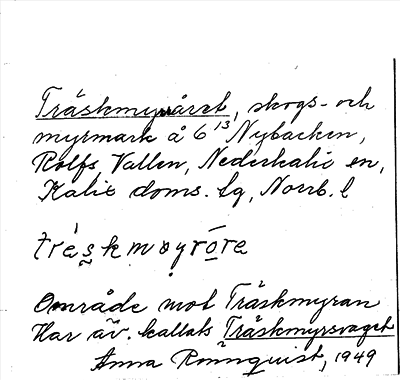 Träskmyråret, skogs- och
myrmark å 6¹³ Nybacken,
Rolfs, Vallen, Nederkalix en,
Kalix doms. lg, Norrb. l
träskmøyrore
Område mot Träskmyran
Har äv. kallats Träskmyrsvaget
Anna Rönnquist, 1949